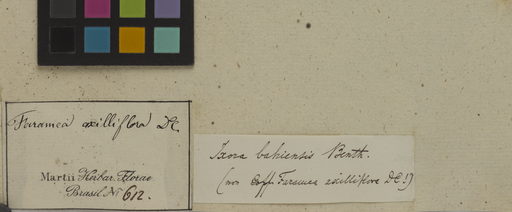 Faramea axilliflora DC.
Martii Herbar. Florae
Brasil. No 612.
Ixora bahiensis Benth.
(non Coff. Faramea axilliflora DC!)